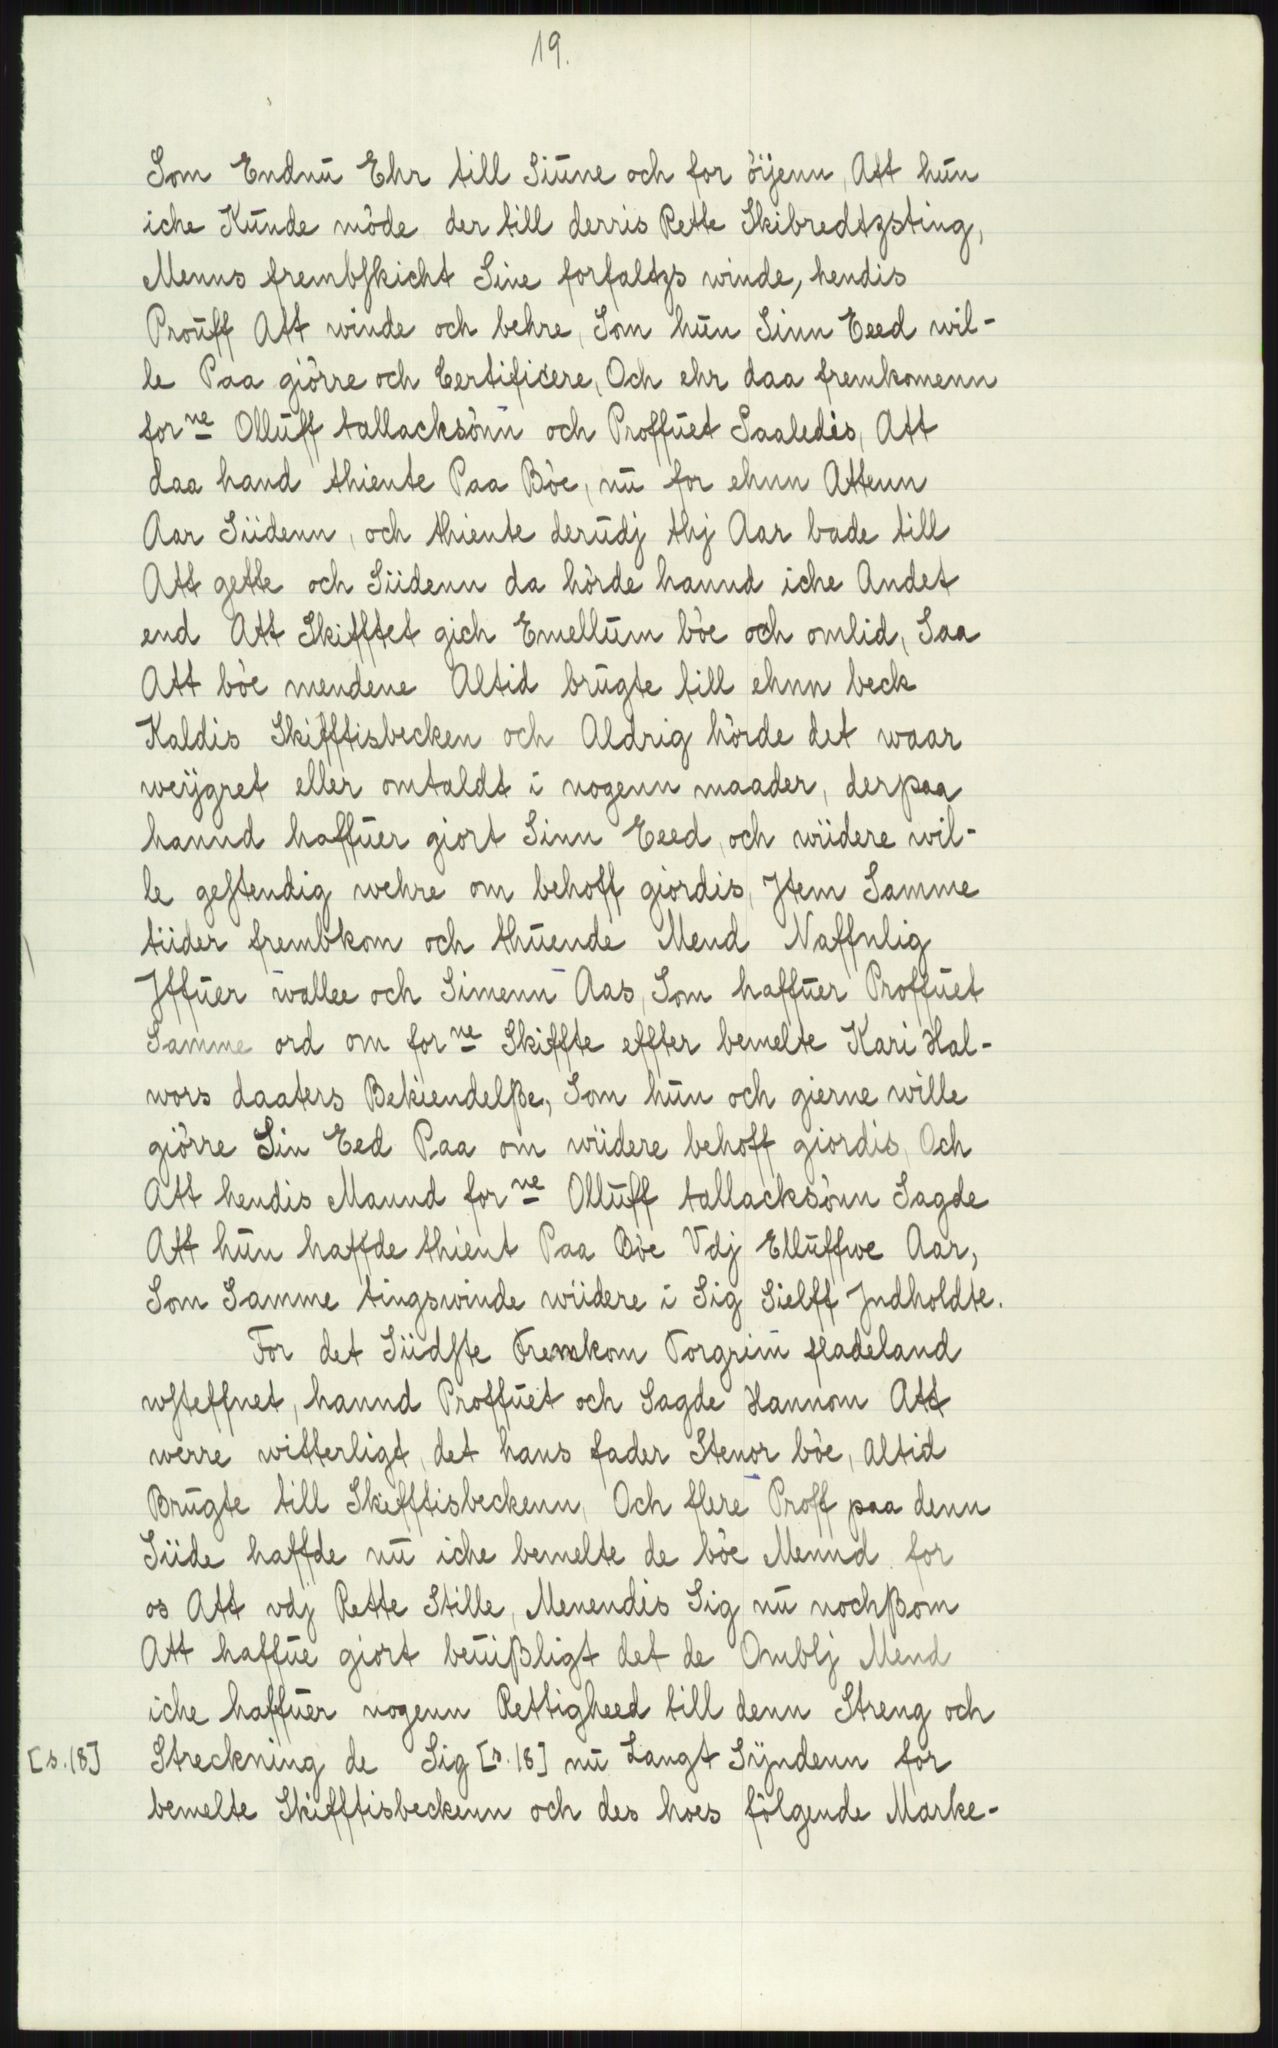 19.
Som Endnu Ehr till Siune och for öijenn, Att hun
iche Kunde möde der till derris Rette Skibredtzsting,
Menns frembskicht Sine forfaltzs winde, hendis
Prouff Att winde och behre, Som hun Sinn Eeed wil-
le Paa giörre och Certificere, Och ehr daa fremkomenn
forne Olluff tallacksönn och Proffuet Saaledis, Att
daa hand thiente Paa Böe, nu for ehnn Attenn
Aar Siidenn, och thiente derudj thj Aar bade till
Att gette och Siidenn da hörde hannd iche Andet
end Att Skifftet gich Emellum böe och omlid, Saa
Att böe mendene Altid brugte till ehnn beck
Kaldis Skifftisbecken och Aldrig hörde det waar
weijgret eller omtaldt i nogenn maader, derpaa
hannd haffuer giort Sinn Eeed, och wiidere wil-
le gestendig wehre om behoff giordis, Jtem Samme
tiider frembkom och thuende Mend Naffnlig
Jffuer wallee och Simenn Aas, Som haffuer Proffuet
Samme ord om forne Skiffte effter bemelte Kari Hal-
wors daaters Bekiendelße, Som hun och gierne wille
giörre Sin Eed Paa om wiidere behoff giordis, Och
Att hendis Mannd forne Olluff tallacksönn Sagde
Att hun haffde thient Paa Böe Vdj Elluffwe Aar,
Som Samme tingswinde wiidere i Sig Sielff Jndholdte.
For det Siidste Fremkom Torgrim fladeland
wsteffnet, hannd Proffuet och Sagde Hannom Att
werre witterligt, det hans fader Stenor böe, Altid
Brugte till Skifftisbeckenn, Och flere Proff paa denn
Siide haffde nu iche bemelte de böe Mennd for
os Att vdj Rette Stille, Menendis Sig nu nochßom
Att haffue giort beuißligt det de Omblj Mend
iche haffuer nogenn Rettigheed till denn Streng och
[s. 18] Streckning de Sig [s. 18] nu Langt Sÿndenn for
bemelte Skifftisbeckenn och des hoes fölgende Marke-